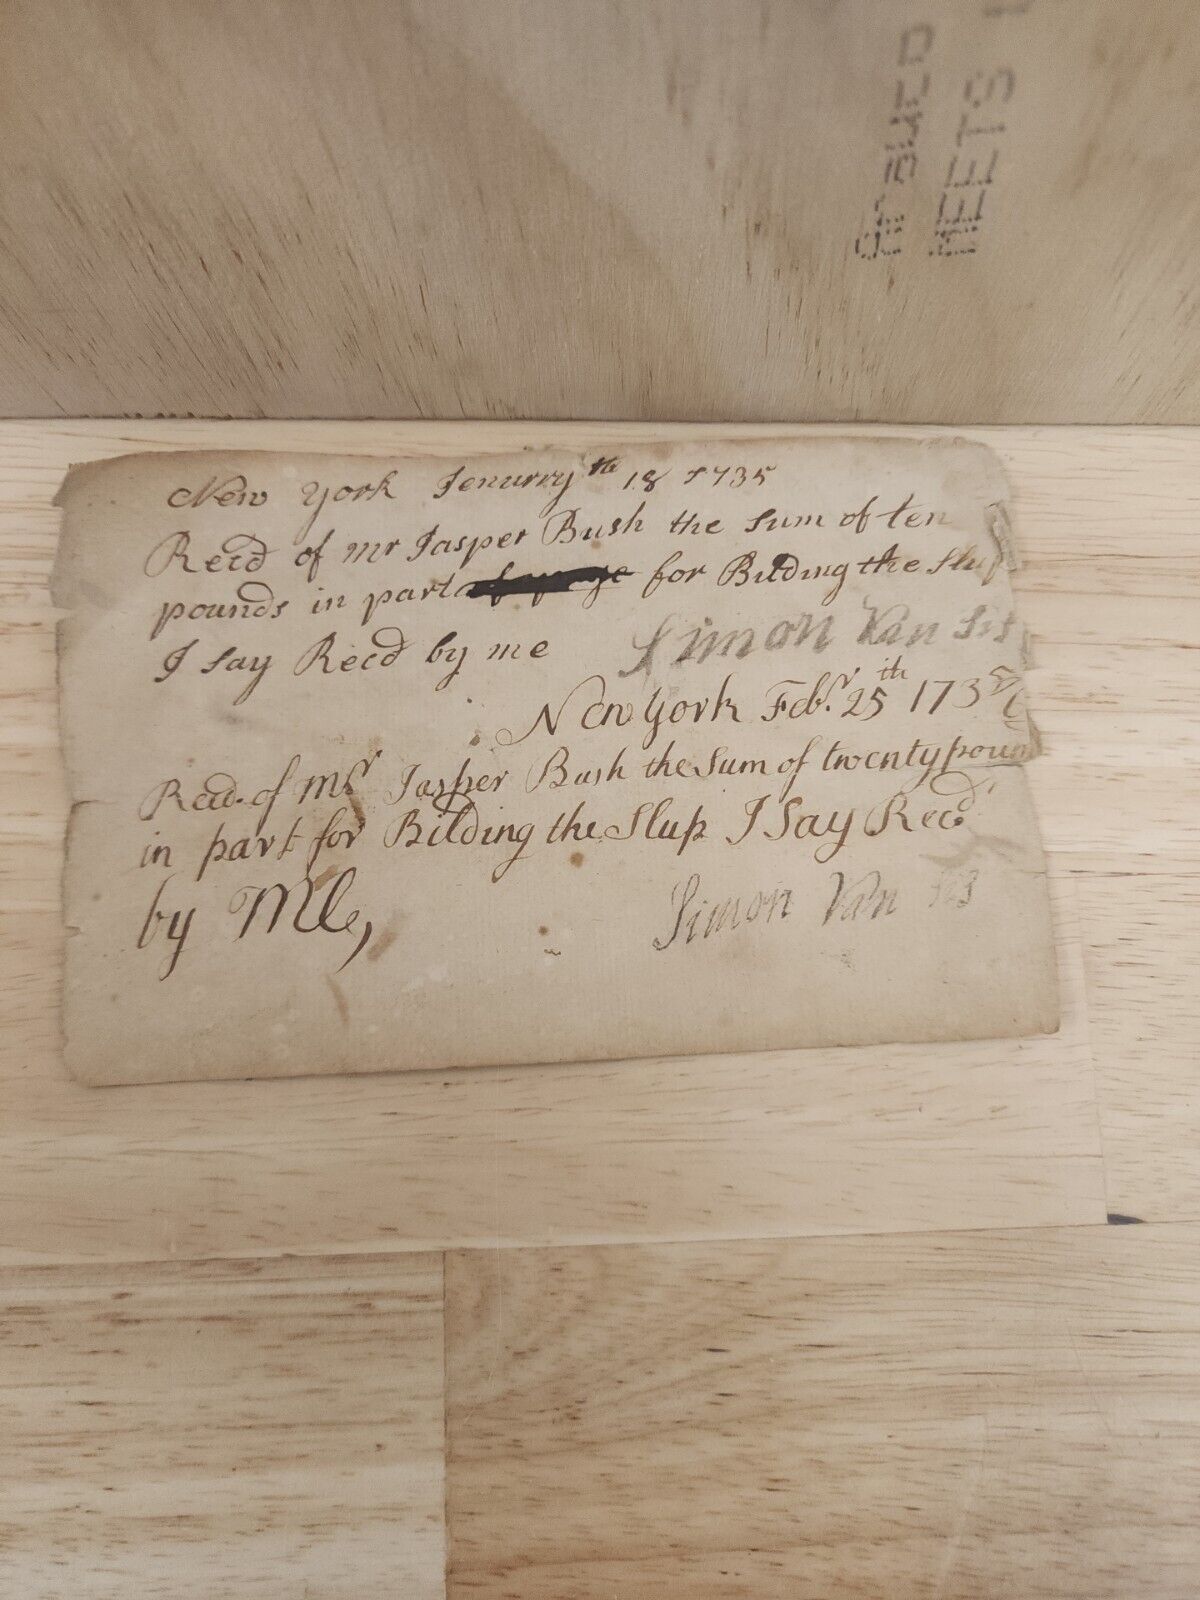 New York Jenurry th 18 1735
Recd of mr Jasper Bush the sum of ten
pounds in part for Bilding the Slup
I say Recd by me Simon Van
New york Febr. 25th 1735
Recd. of Mr Jasper Bush the Sum of twenty poun
in part for Bilding the Slup I Say Recd
by Me, Simon Van